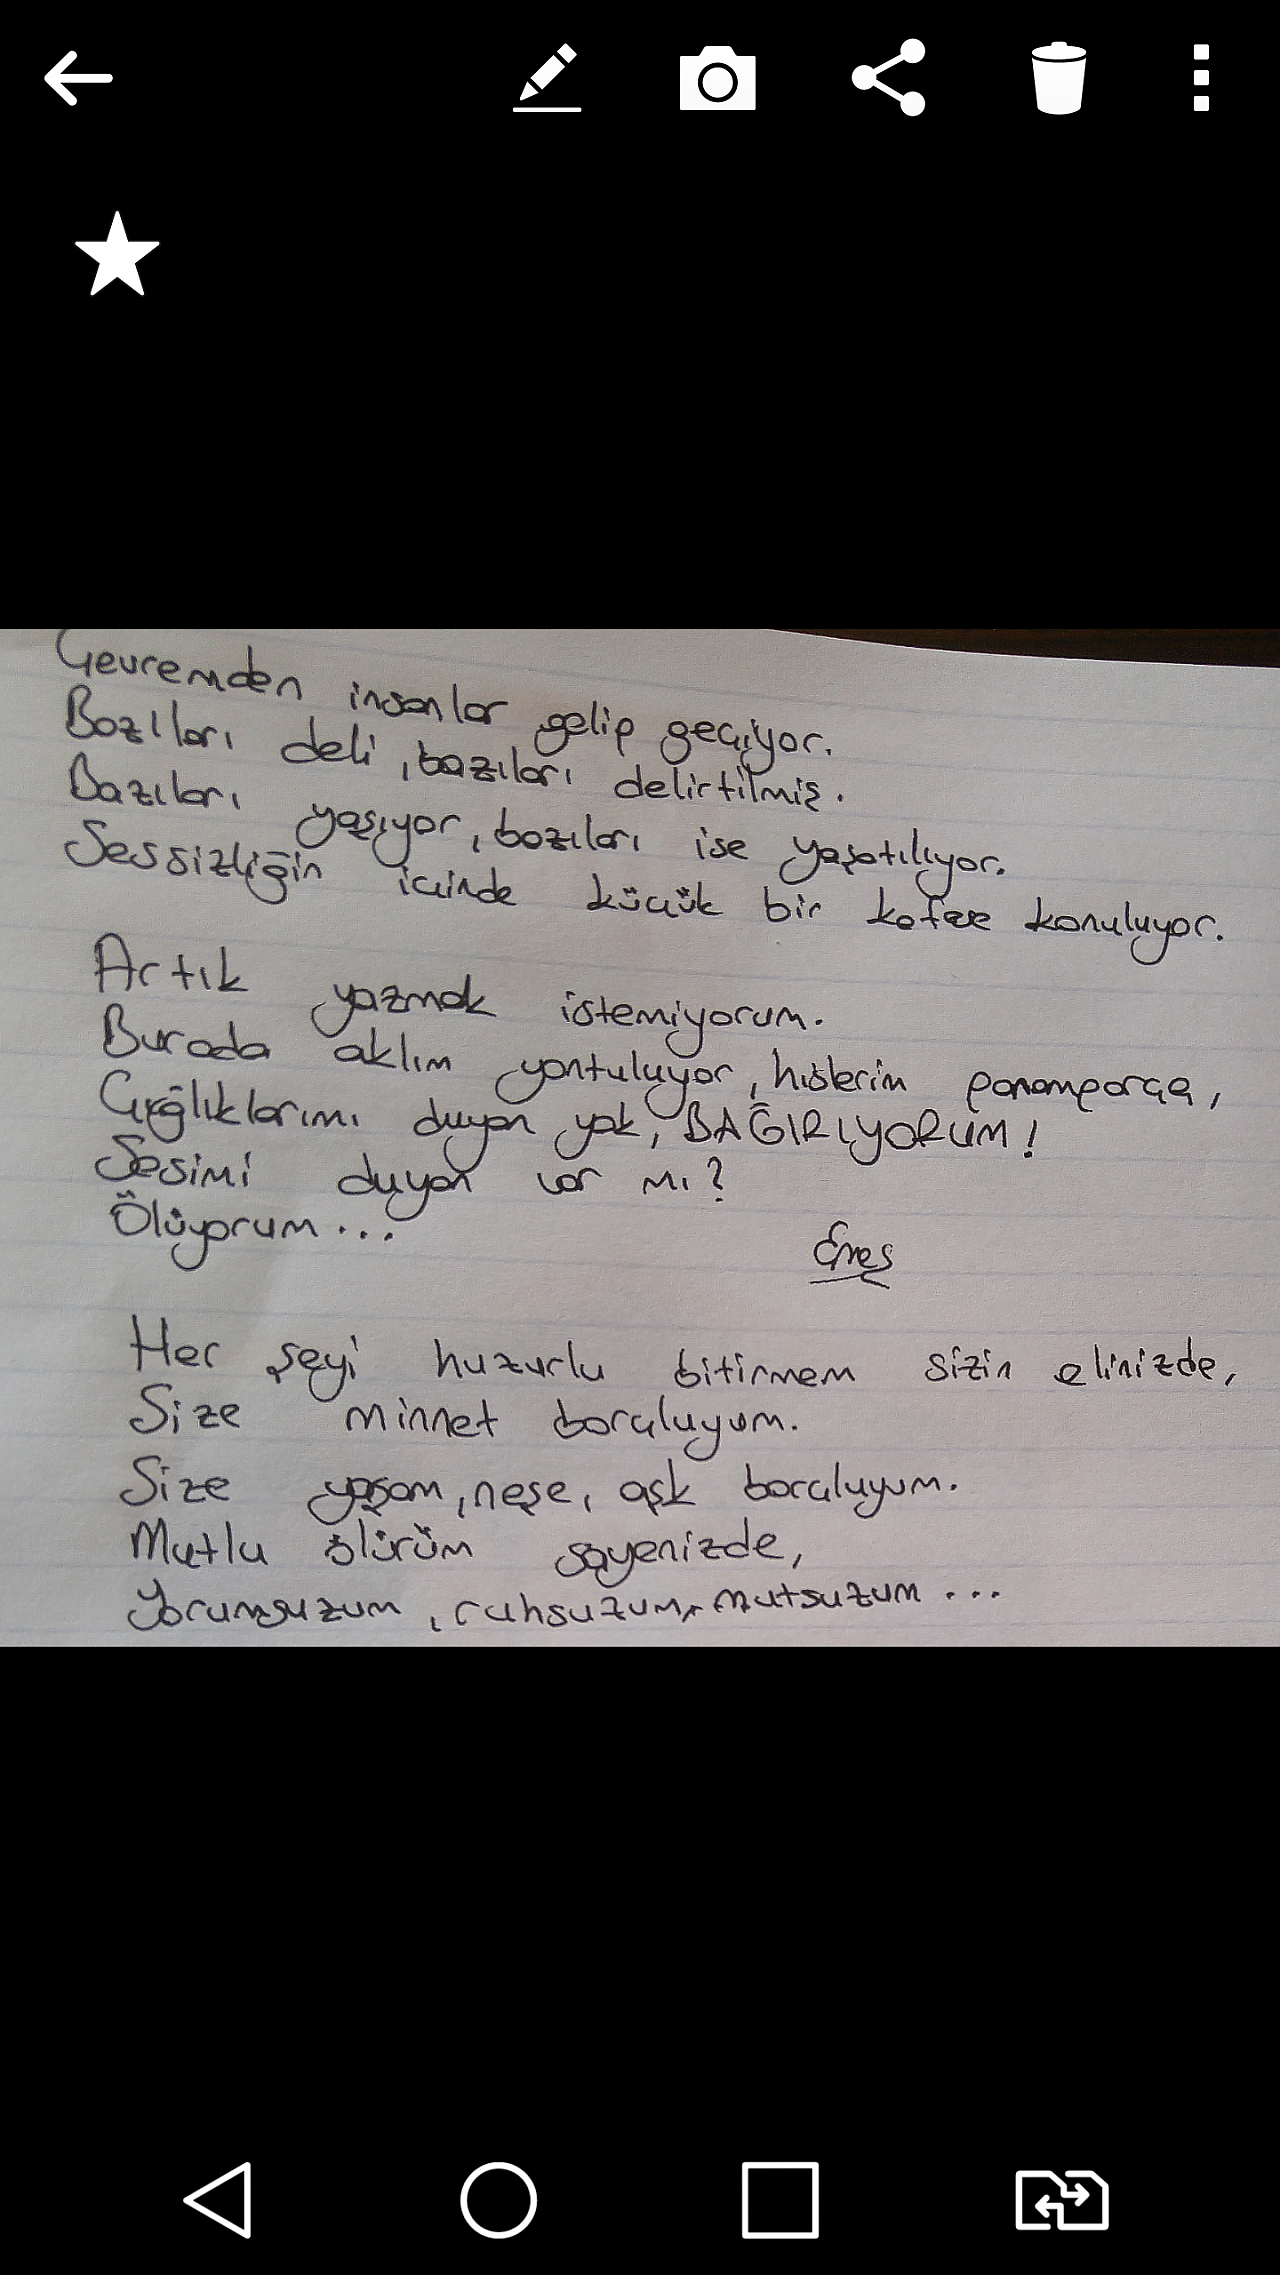 Çevremden insanlar gelip geçiyor.
Bazıları deli, bazıları delirtilmiş.
Bazıları yaşıyor, bazıları ise yaşatılıyor.
Sessizliğin içinde küçük bir kafese konuluyor.
Artık yazmak istemiyorum.
Burada aklım yontuluyor, hislerim paramparça,
Çığlıklarımı duyan yok, BAĞIRIYORUM!
Sesimi duyan var mı?
Ölüyorum...
Enes
Her şeyi huzurlu bitirmem sizin elinizde,
Size minnet borçluyum.
Size yaşam, neşe, aşk borçluyum.
Mutlu ölürüm sayenizde,
Yorumsuzum, ruhsuzum, mutsuzum...